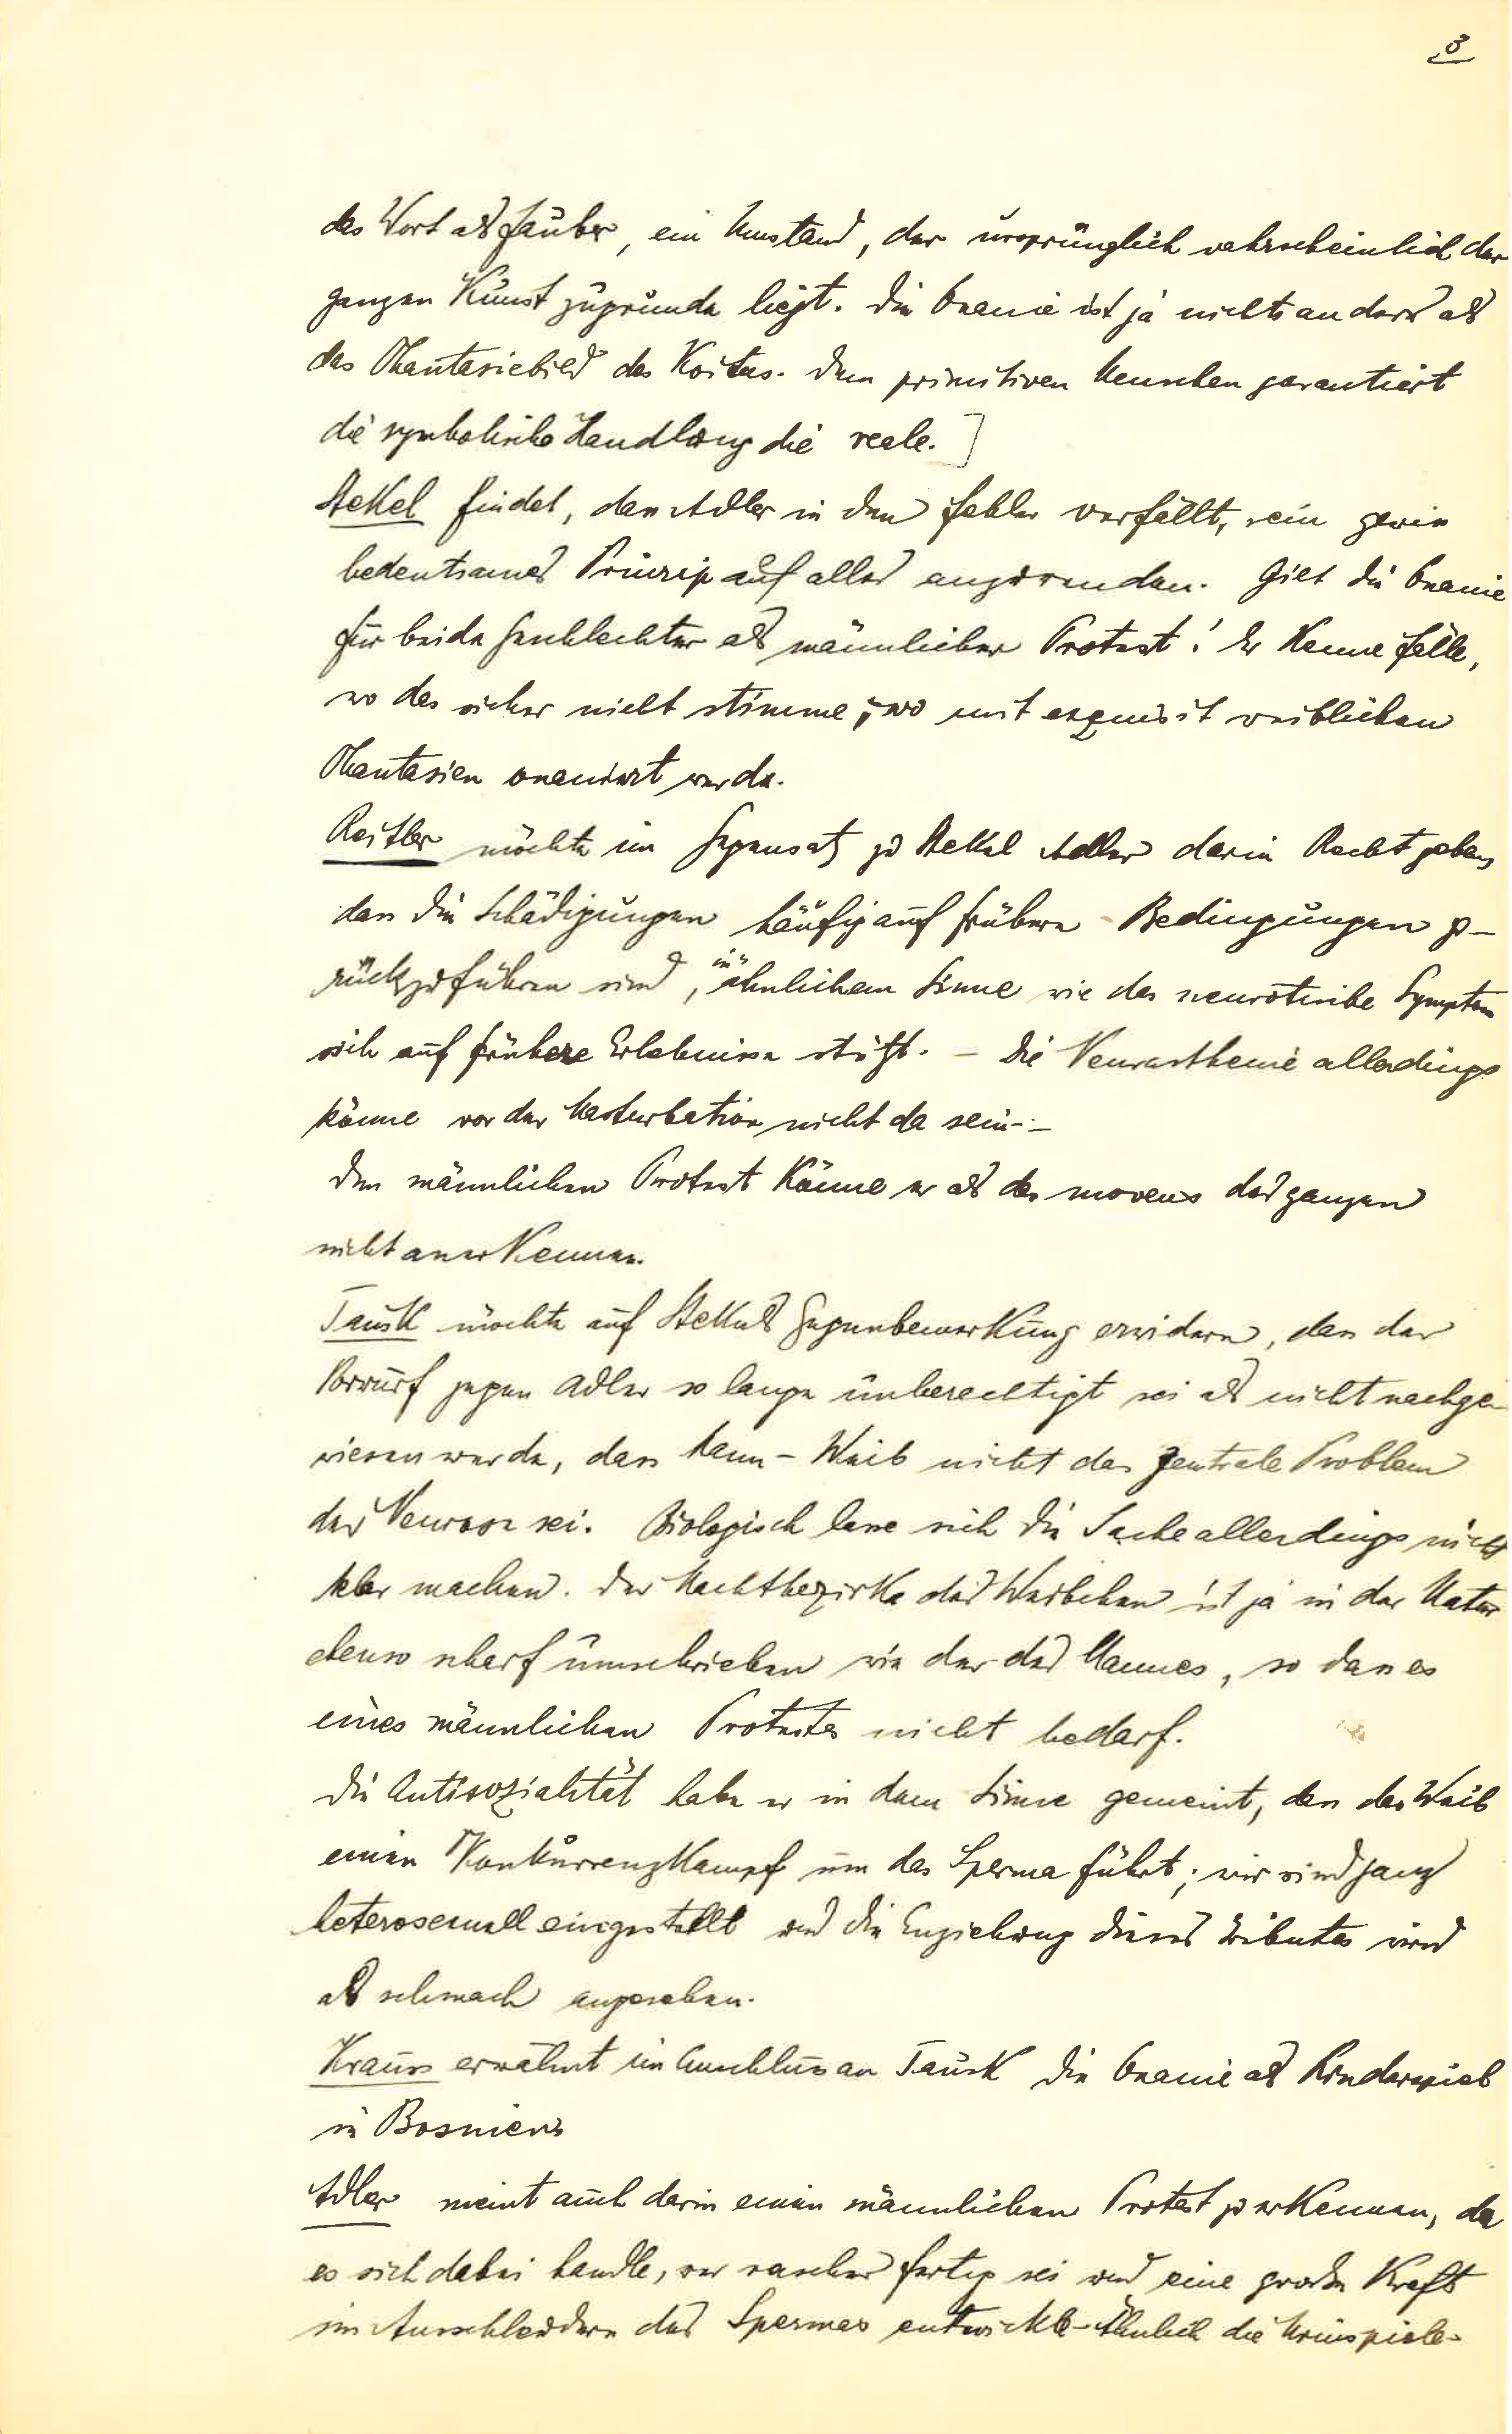 3
das Wort als Zauber, ein Umstand, der ursprünglich wahrscheinlich der
ganzen Kunst zugrunde liegt. Die Onanie ist ja nichts anders als
das Phantasiebild des Koitus. Dem primitiven Menschen garantiert
die symbolische Handlung die reale.]
Stekel findet, dass Adler in den Fehler verfällt, sein gewiss
bedeutsames Prinzip auf alles anzuwenden. Gilt die Onanie
für beide Geschlechter als männlicher Protest! Er kenne Fälle,
wo das sicher nicht stimme, wo mit exquisit weiblichen
Phantasien onaniert werde.
Reitler möchte im Gegensatz zu Stekel Adler darin Recht geben,
dass die Schädigungen häufig auf frühere Bedingungen zu-
rückzuführen sind, in ähnlichem Sinne wie das neurotische Symptom
sich auf frühere Erlebnisse stützt. – Die Neurasthenie allerdings
könne vor der Masturbation nicht da sein. –
Den männlichen Protest könne er als das movens des ganzen
nicht anerkennen.
Tausk möchte auf Stekels Gegenbemerkung erwidern, dass der
Vorwurf gegen Adler so lange unberechtigt sei als nicht nachge-
wiesen werde, dass Mann – Weib nicht das zentrale Problem
der Neurose sei. Biologisch lasse sich die Sache allerdings nicht
klar machen. Der Machtbezirk des Weibchen ist ja in der Natur
ebenso scharf umschrieben wie der des Mannes, so dass es
eines männlichen Protestes nicht bedarf.
Die Antisozialität habe er in dem Sinne gemeint, dass das Weib
einen Konkurrenzkampf um das Sperma führt; wir sind ganz
heterosexuell eingestellt und die Entziehung dieses Tributes wird
als Schmach angesehen.
Krauss erwähnt im Anschluss an Tausk die Onanie als Kinderspiel
in Bosnien.
Adler meint auch darin einen männlichen Protest zu erkennen, da
es sich dabei handle, wer rascher fertig sei und eine grosse Kraft
im Ausschleudern des Spermas entwickle. Ähnlich die Urinspiele.